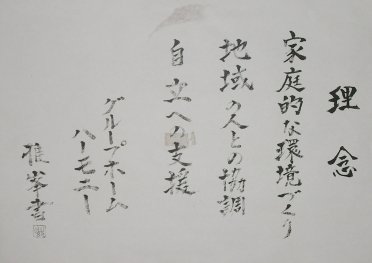 理念
家庭的な環境づくり
地域の人との協調
自立への支援
グループホーム
ハーモニー